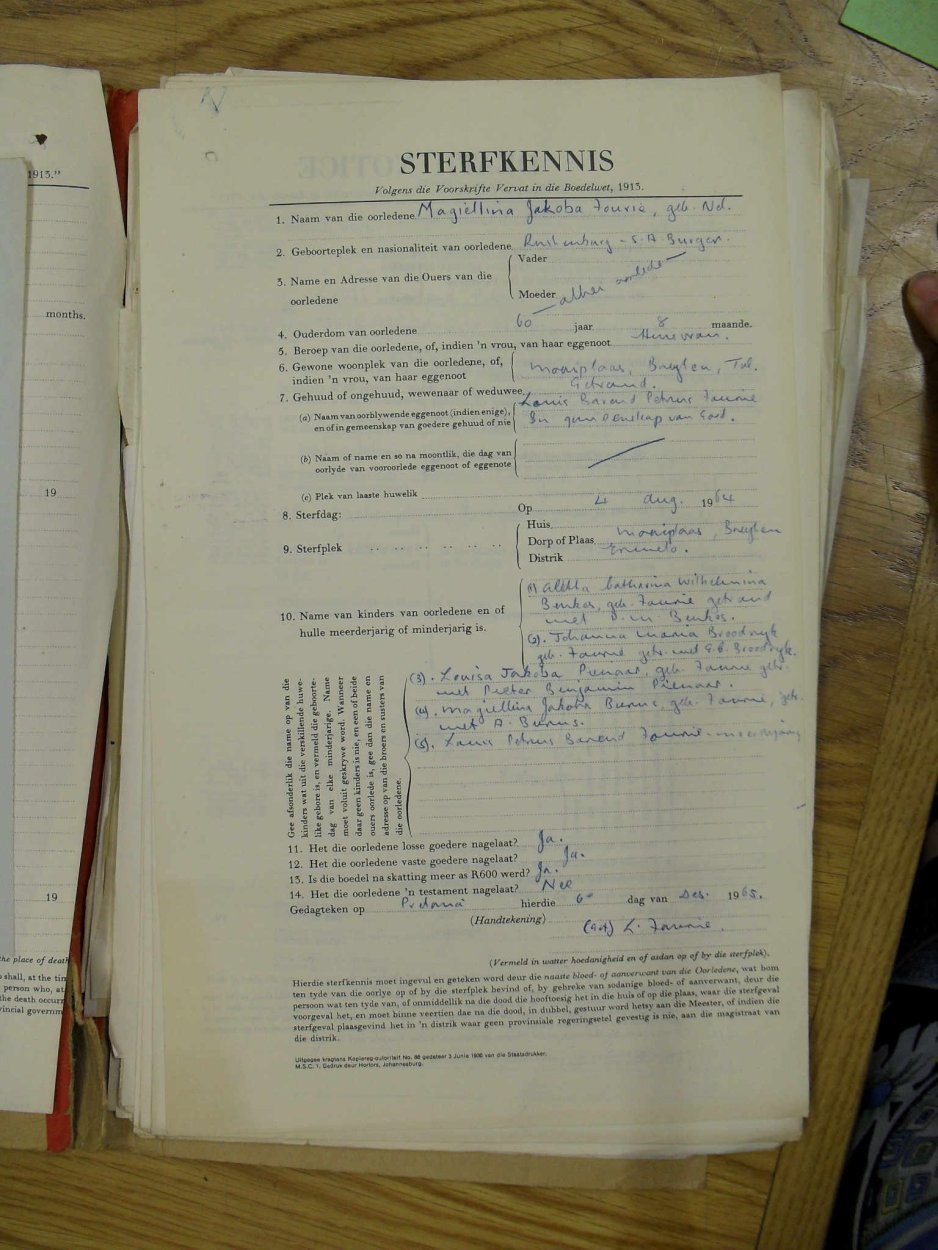 1913."
months.
19
19
the place of death
shall, at the tim
person who, at
the death occurr
vincial governm
STERFKENNIS
Volgens die Voorskrifte Vervat in die Boedelwet, 1913.
1. Naam van die oorledene Magiellina Jakoba Fourie, geb. Nel.
2. Geboorteplek en nasionaliteit van oorledene Rustenburg - S.A. Burger.
3. Name en Adresse van die Ouers van die oorledene
Vader
Moeder
albei oorlede
4. Ouderdom van oorledene 60 jaar 8 maande.
5. Beroep van die oorledene, of, indien 'n vrou, van haar eggenoot Huisvrou.
6. Gewone woonplek van die oorledene, of, indien 'n vrou, van haar eggenoot Mooiplaas, Breyten, Tvl.
7. Gehuud of ongehuud, wewenaar of weduwee Getroud.
(a) Naam van oorblywende eggenoot (indien enige), en of in gemeenskap van goedere gehuud of nie Louis Barend Petrus Fourie
In gemeenskap van Goed.
(b) Naam of name en so na moontlik, die dag van oorlyde van vooroorlede eggenoot of eggenote
(c) Plek van laaste huwelik
8. Sterfdag: Op 4 Aug. 1964
9. Sterfplek
Huis
Dorp of Plaas Mooiplaas, Breyten
Distrik Ermelo.
10. Name van kinders van oorledene en of hulle meerderjarig of minderjarig is.
(1) Aletta Catharina Wilhelmina
Benkes, geb. Fourie getroud
met P.M. Benkes.
(2). Johanna Maria Broodryk
geb. Fourie getr. met G.B. Broodryk.
(3). Louisa Jakoba Pienaar, geb. Fourie getr.
met Pieter Benjamin Pienaar.
(4). Magiellina Jakoba Burns, geb. Fourie, getr.
met A. Burns.
(5). Louis Petrus Barend Fourie - meerderjarig
Gee afsonderlik die name op van die
kinders wat uit die verskillende huwe-
like gebore is, en vermeld die geboorte-
dag van elke minderjarige. Name
moet voluit geskrywe word. Wanneer
daar geen kinders is nie, en een of beide
ouers oorlede is, gee dan die name en
adresse op van die broers en susters van
die oorledene.
11. Het die oorledene losse goedere nagelaat? Ja.
12. Het die oorledene vaste goedere nagelaat? Ja.
13. Is die boedel na skatting meer as R600 werd? Ja.
14. Het die oorledene 'n testament nagelaat? Nee
Gedagteken op Pretoria hierdie 6e dag van Des. 1965.
(Handtekening) (get) L. Fourie.
(Vermeld in watter hoedanigheid en of asdan op of by die sterfplek).
Hierdie sterfkennis moet ingevul en geteken word deur die naaste bloed- of aanverwant van die Oorledene, wat bom
ten tyde van die oorlye op of by die sterfplek bevind of, by gebreke van sodanige bloed- of aanverwant, deur die
persoon wat ten tyde van, of onmiddelik na die dood die hooftoesig het in die huis of op die plaas, waar die sterfgeval
voorgeval het, en moet binne veertien dae na die dood, in dubbel, gestuur word hetsy aan die Meester, of indien die
sterfgeval plaasgevind het in 'n distrik waar geen provinsiale regeringsetel gevestig is nie, aan die magistraat van
die distrik.
Uitgegee kragtens Kopiereg-autoriteit No. 86 gedateer 3 Junie 1936 van die Staatsdrukker.
M.S.C. 1. Gedruk deur Hortors, Johannesburg.